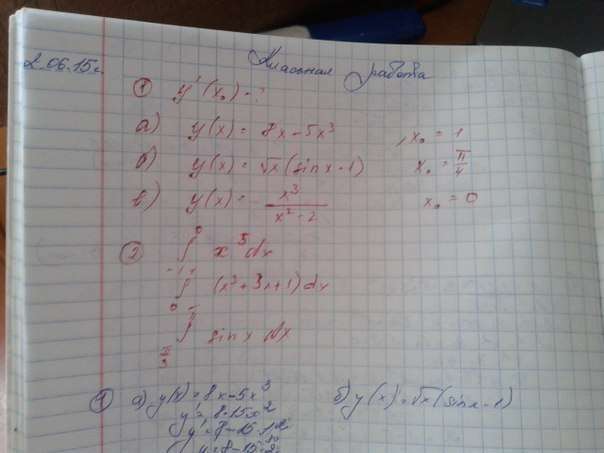 2.06.15г. Классная работа
① y'(x₀) - ?
а) y(x) = 8x - 5x³ , x₀ = 1
б) y(x) = √x (sin x - 1) x₀ = π/4
в) y(x) = - x³/(x² - 2) x₀ = 0
② ∫₋₁⁰ x⁵ dx
∫₀¹ (x³ + 3x + 1) dx
∫ π/3 π sin x dx
① а) y(x) = 8x - 5x³ б) y(x) = √x (sin x - 1)
y' = 8 - 15x²
y' = 8 - 15 · 1²
y' = 8 - 15